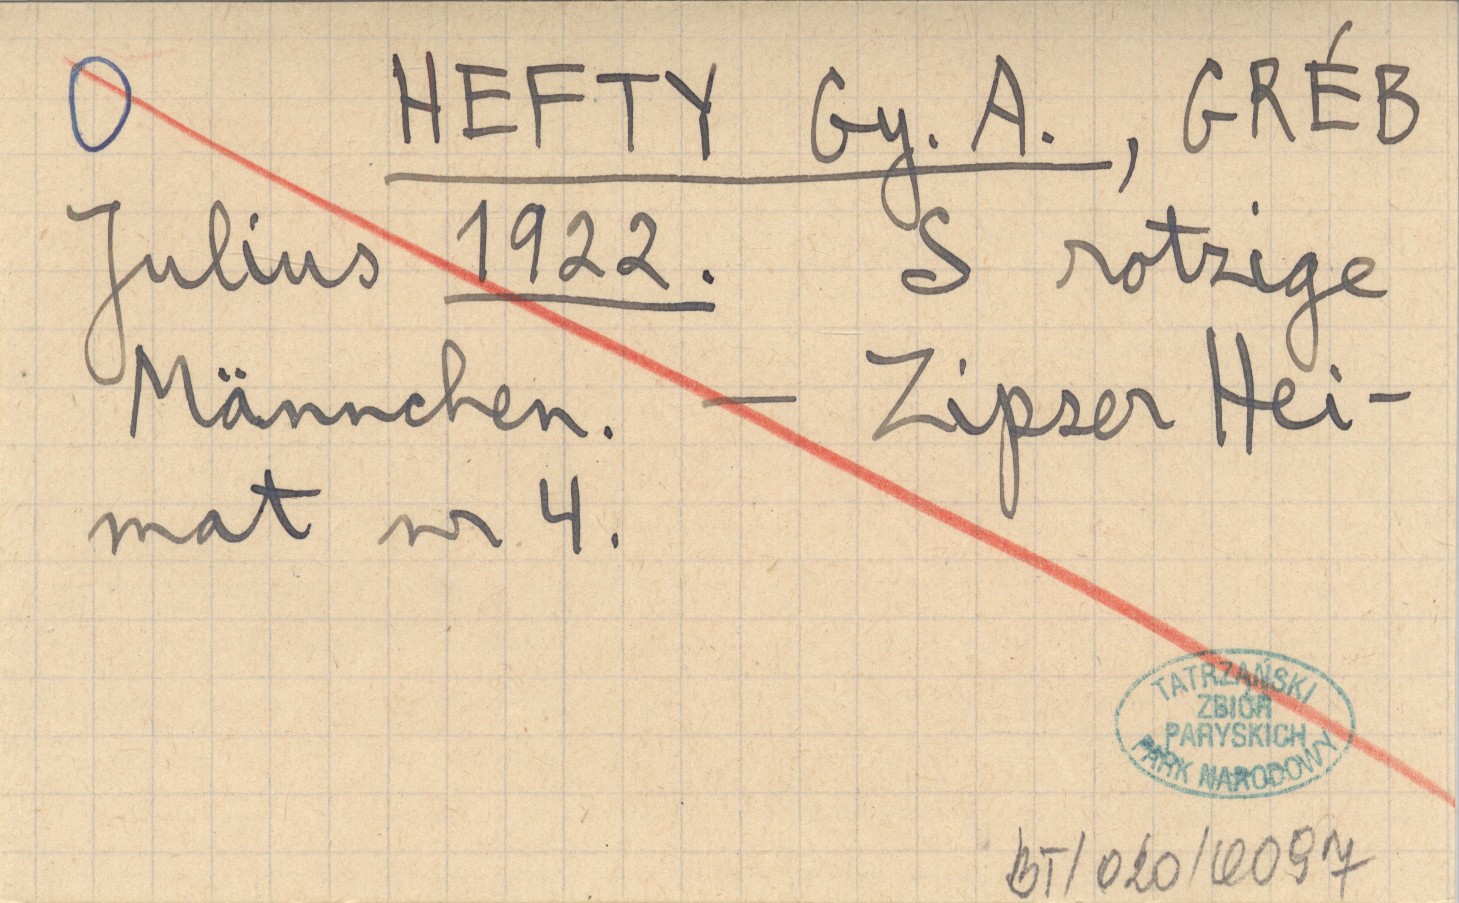 O HEFTY Gy. A., GRÉB
Julius 1922. S rotzige
Männchen. — Zipser Hei-
mat nr 4.
TATRZAŃSKI
ZBIÓR
PARYSKICH
PARK NARODOWY
BT/020/6097